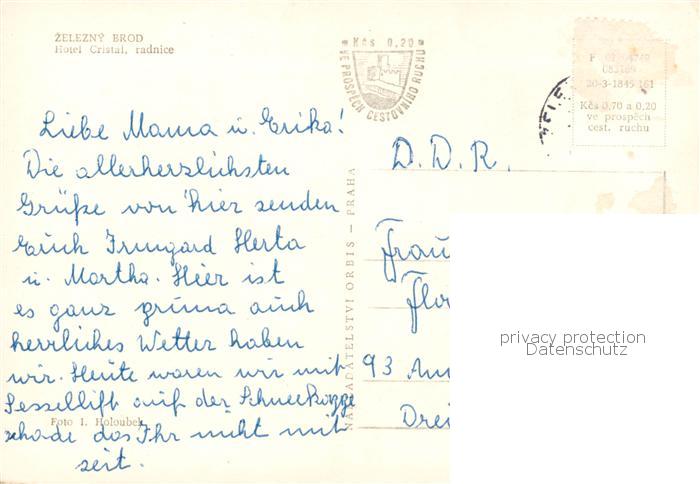 ŽELEZNÝ BROD
Hotel Cristal, radnice
Liebe Mama u. Erika!
Die allerherzlichsten
Grüße von hier senden
Euch Irmgard Herta
u. Martha. Hier ist
es ganz prima auch
herrliches Wetter haben
wir. Heute waren wir mit
Sessellift auf der Schneekoppe
schade das Ihr nicht mit
seit.
Foto I. Holoubek
NAKLADATELSTVÍ ORBIS – PRAHA
Kčs 0,20
VE PROSPĚCH CESTOVNÍHO RUCHU
20-3-1845 161
Kčs 0,70 a 0,20
ve prospěch
cest. ruchu
D. D. R.
Frau
93
privacy protection
Datenschutz